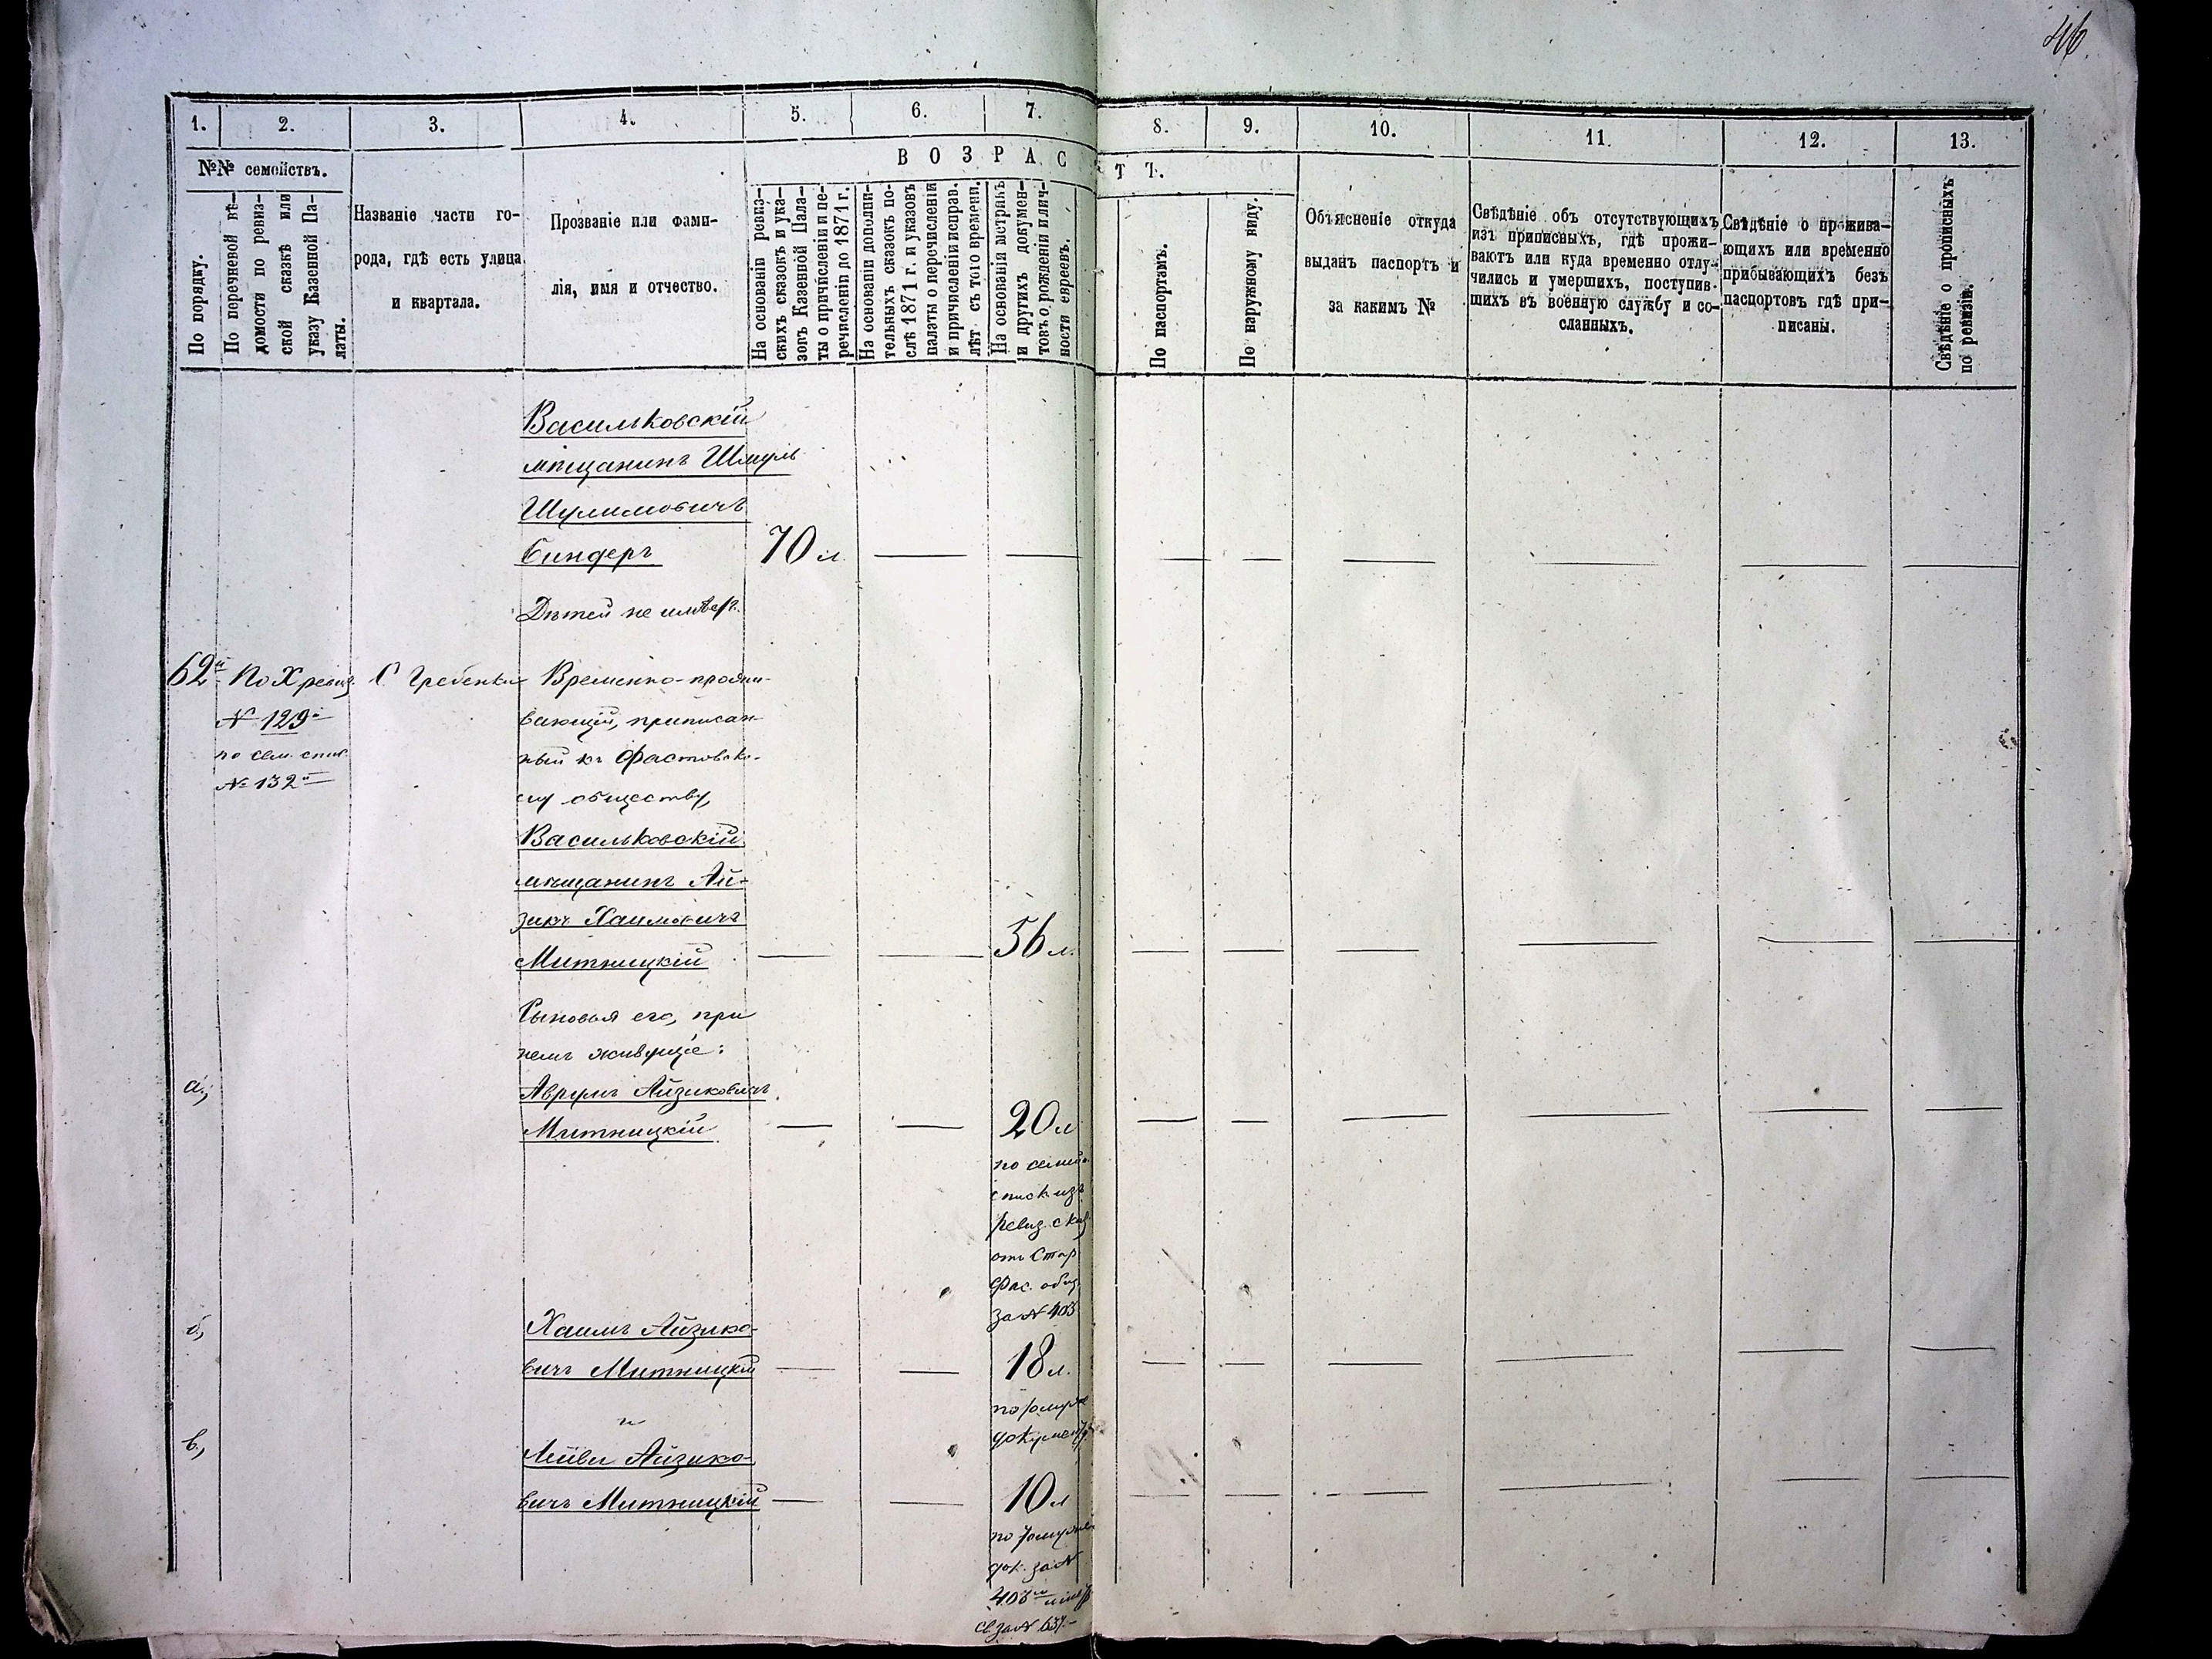 46.
1.
2.
3.
4.
5.
6.
7.
8.
9.
10.
11.
12.
13.
№№ семействъ.
ВОЗРАС
ТЪ.
По порядку.
По перечневой вѣ-
домости по ревиз-
ской сказкѣ или
указу Казенной Па-
латы.
Названіе части го-
рода, гдѣ есть улица
и квартала.
Прозваніе или фами-
лія, имя и отчество.
На основаніи ревиз-
скихъ сказокъ и ука-
зовъ Казенной Пала-
ты о причисленіи и пе-
речисленіи до 1871 г.
На основаніи дополни-
тельныхъ сказокъ по-
слѣ 1871 г. и указовъ
палаты о перечисленіи
и причисленіи исправ.
лѣт съ того времени.
На основаніи метрикъ
и другихъ докумен-
товъ о рожденіи и лич-
ности евреевъ.
По паспортамъ.
По наружному виду.
Объясненіе откуда
выданъ паспортъ и
за какимъ №
Свѣдѣніе объ отсутствующихъ
изъ приписныхъ, гдѣ прожи-
ваютъ или куда временно отлу-
чились и умершихъ, поступив-
шихъ въ военную службу и со-
сланныхъ.
Свѣдѣніе о прожива-
ющихъ или временно
прибывающихъ безъ
паспортовъ гдѣ при-
писаны.
Свѣдѣніе о прописныхъ
по ревизіи.
Васильковскій
мѣщанинъ Шмуль
Шулимовичъ
Биндеръ 70 л.
Дѣтей не имѣетъ.
62й По X ревиз. С. Гребенки Временно-прожи-
№ 129й вающій, приписан-
по сем. спис. ный къ Фастовско-
№ 132й
му обществу,
Васильковскій
мѣщанинъ Ай-
зикъ Хаимовичъ
Митницкій 56 л.
Сыновья его, при
немъ живущіе:
а., Аврумъ Айзиковичъ
Митницкій 20 л.
по семейн.
списк. изъ
ревиз. сказ.
отъ Стар.
Фас. общ.
за № 403
б., Хаимъ Айзико-
вичъ Митницкій 18 л.
по тому же
документу
и
в., Лейви Айзико-
вичъ Митницкій 10 л.
по тому же
док. за №
403
св. за №